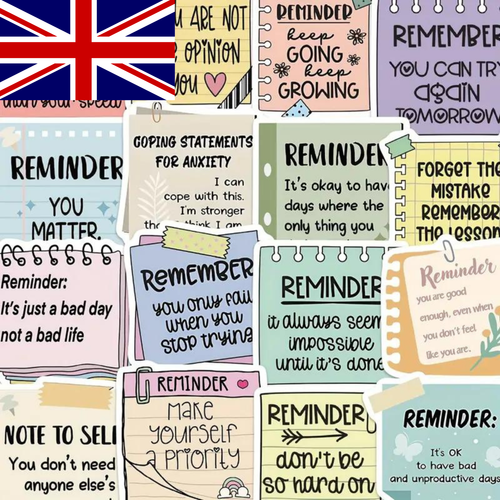 ARE NOT
OPINION
YOU
REMINDER
keep
GOING
keep
GROWING
REMEMBER
YOU CAN TRY
again
TOMORROW
than your speed
REMINDER
YOU
MATTER.
COPING STATEMENTS
FOR ANXIETY
I can
cope with this.
I'm stronger
think I am
REMINDER
It's okay to have
days where the
only thing you
FORGET THE
MISTAKE
REMEMBER
THE LESSON
Reminder:
It's just a bad day
not a bad life
REMEMBER
you only fail
when you
stop trying
REMINDER
it always seems
impossible
until it's done
Reminder
you are good
enough, even when
you don't feel
like you are.
NOTE TO SELF
You don't need
anyone else's
REMINDER
MAKE
YOURSELF
A PRIORITY
REMINDER
don't be
so hard on
REMINDER:
It's OK
to have bad
and unproductive days